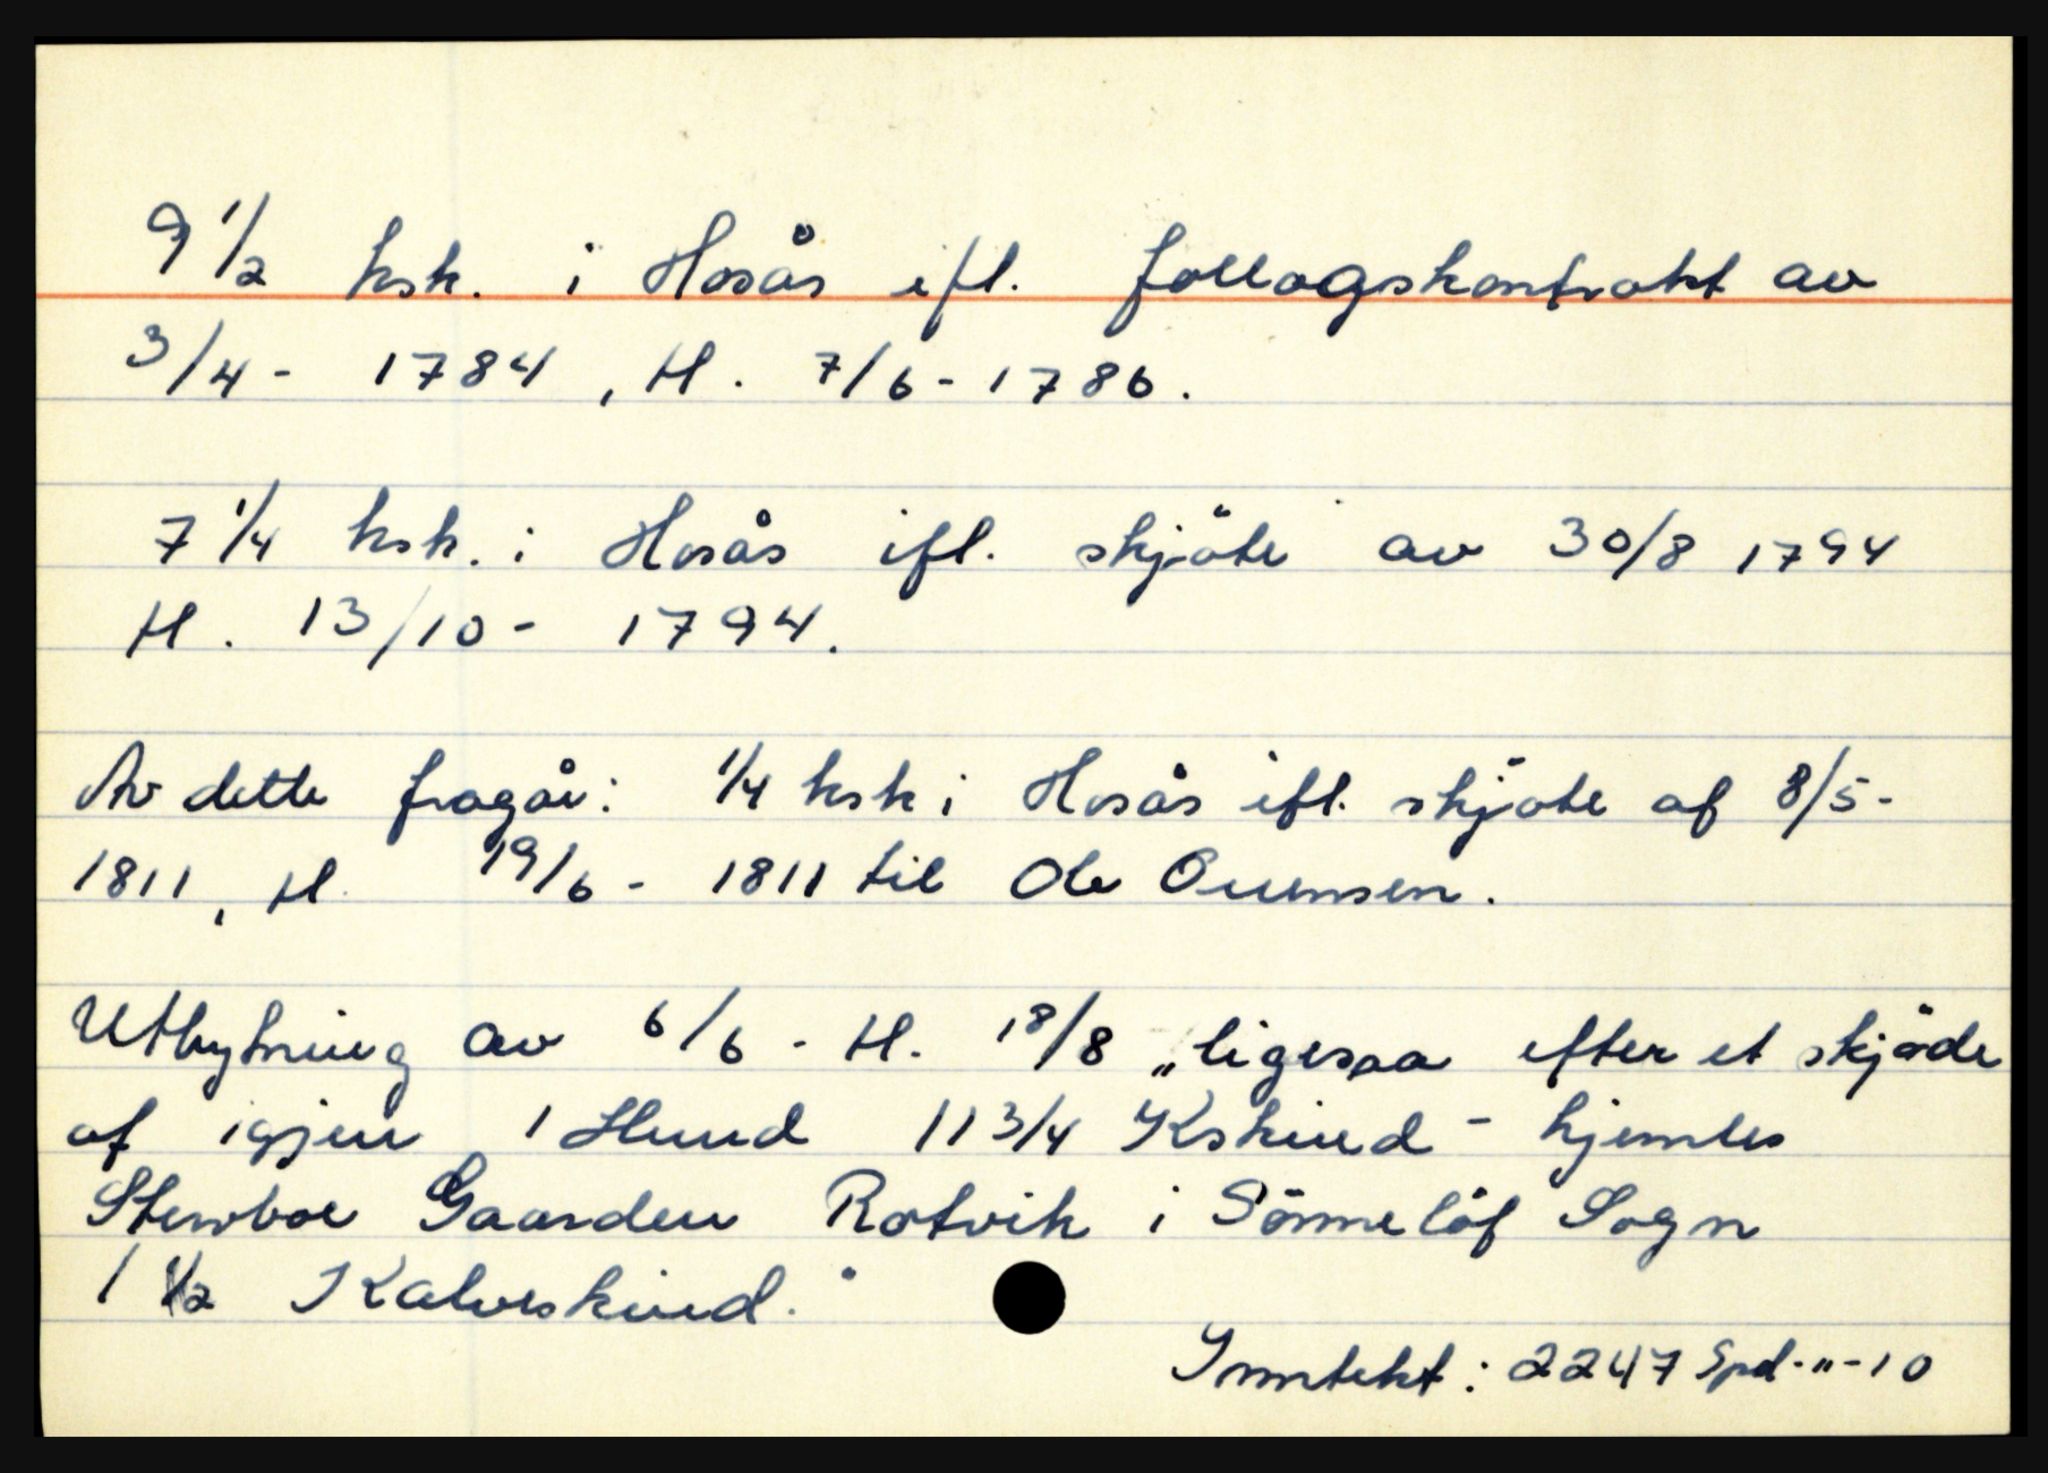 9 1/2 ksk. i Hosås ifl. follogskontrakt av
3/4 - 1784, tl. 7/6 - 1786.
7 1/4 ksk. i Hosås ifl. skjöte av 30/8 1794
tl. 13/10 - 1794.
Av dette fragår: 1/4 ksk i Hosås ifl. skjöte af 8/5 -
1811, tl. 19/6 - 1811 til Ole Ouensen.
Utbytning av 6/6 - tl. 18/8 „ligesaa efter et skjöde
af igjen 1 Huud 11 3/4 Kskind - hjemles
Stervboe Gaarden Rotvik i Sönnelöf Sogn
1 1/2 Kalveskind."
Inntekt: 2247 Spd-"-10